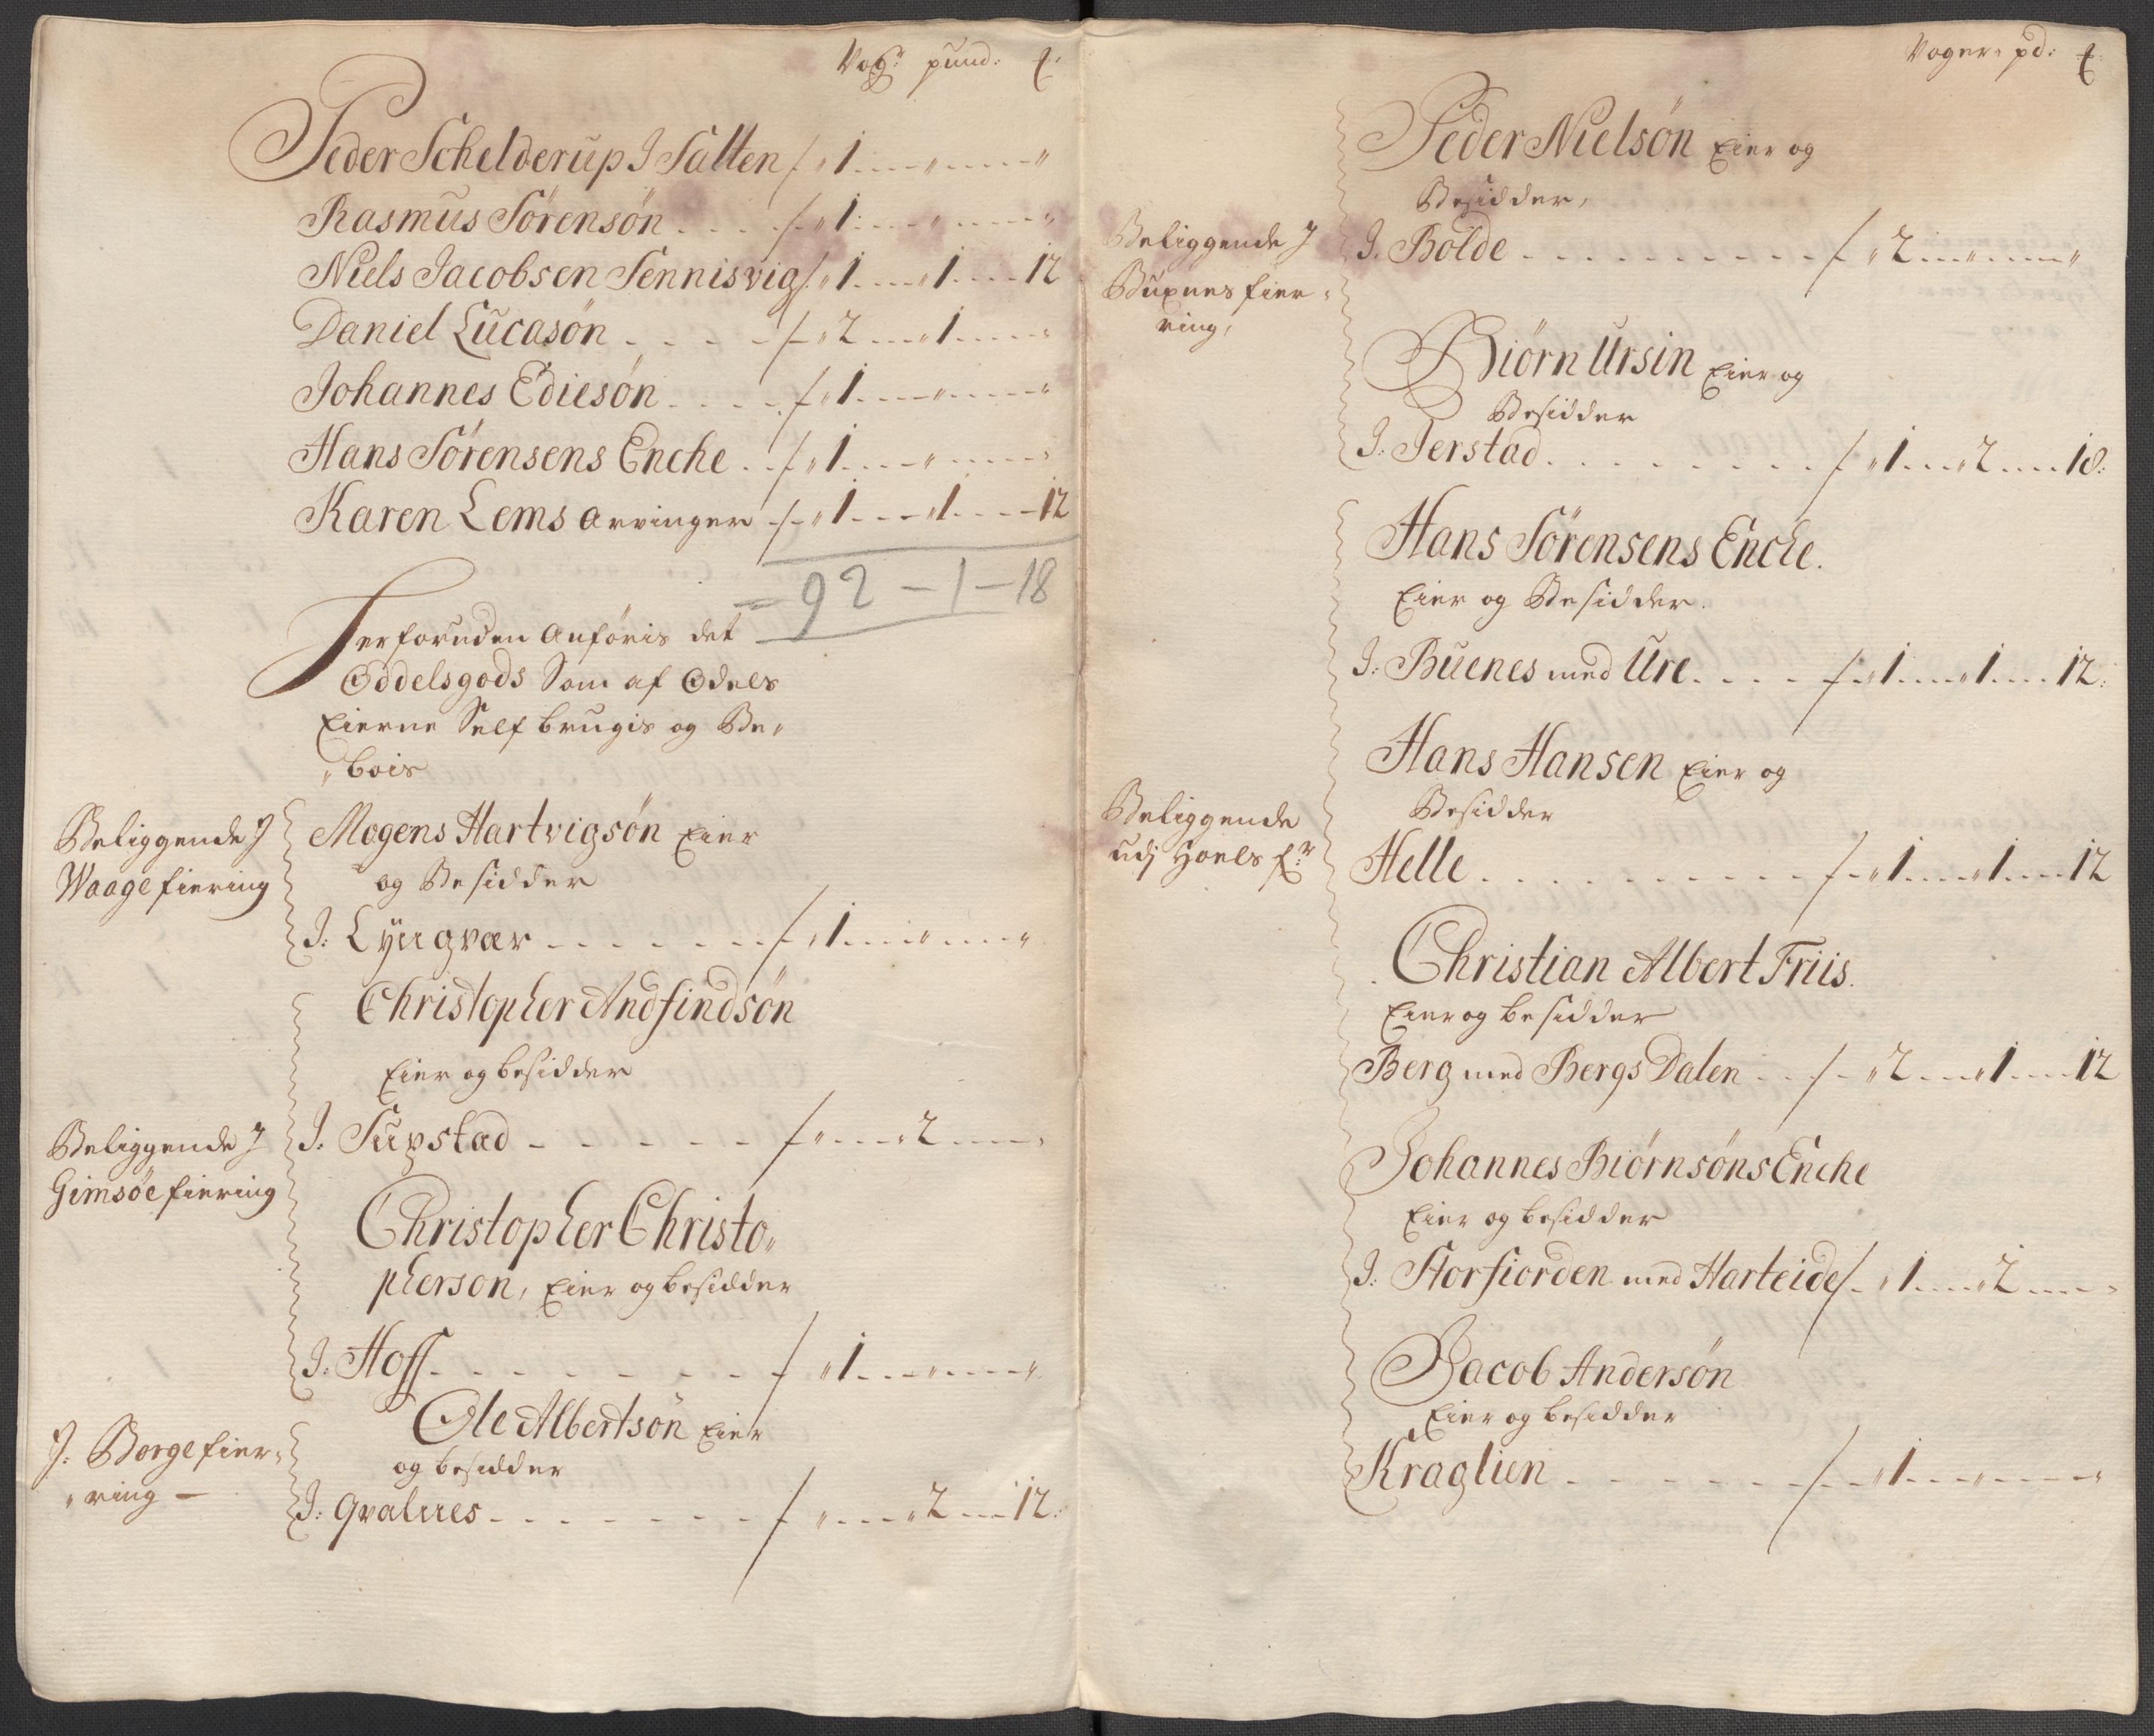 Vogr pund: ℔.
Peder Schelderup I Salten - 1 - " - "
Rasmus Sørensøn - 1 - " - "
Niels Jacobsen Sennisvig - 1 - 1 - 12
Daniel Lucasøn - 2 - 1 - "
Johannes Ediesøn - 1 - " - "
Hans Sørensens Enche - 1 - " - "
Karen Lems arvinger - 1 - 1 - 12
= 92 - 1 - 18
Herforuden Anføris det
Oddelsgods Som af Odels
Eierne Self brugis og Be„
„bois
Beliggende J
Waage fiering
Mogens Hartvigsøn Eier
og Besidder
J: Lyngvær - 1 - " - "
Christopher Andfindsøn
Eier og besidder
Beliggende J
Gimsøe fiering
J: Supstad - " - 2 - "
Christopher Christo„
pherson, Eier og besidder
J: Hoff - 1 - " - "
J: Borge fier„
„ring —
Ole Albertsøn Eier
og besidder
J: Qvalnes - " - 2 - 12:
Voger: pd: ℔:
Peder Nielsøn Eier og
Besidder,
Beliggende J
Buxnes fier„
ring,
J. Bolde - 2 - " - "
Biørn Ursin Eier og
Besidder
J: Jerstad - 1 - 2 - 18:
Hans Sørensens Enche.
Eier og Besidder.
J: Buenes med Ure - 1 - 1 - 12:
Hans Hansen Eier og
Besidder
Beliggende
udj Hoels fr
Helle - 1 - 1 - 12
Christian Albert Friis.
Eier og besidder
Berg med Bergs Dalen - 2 - 1 - 12
Johannes Biørnsøns Enche
Eier og besidder
J: Storfiorden med Harteide - 1 - 2 - "
Jacob Andersøn
Eier og besidder
Kraglien - 1 - " - "